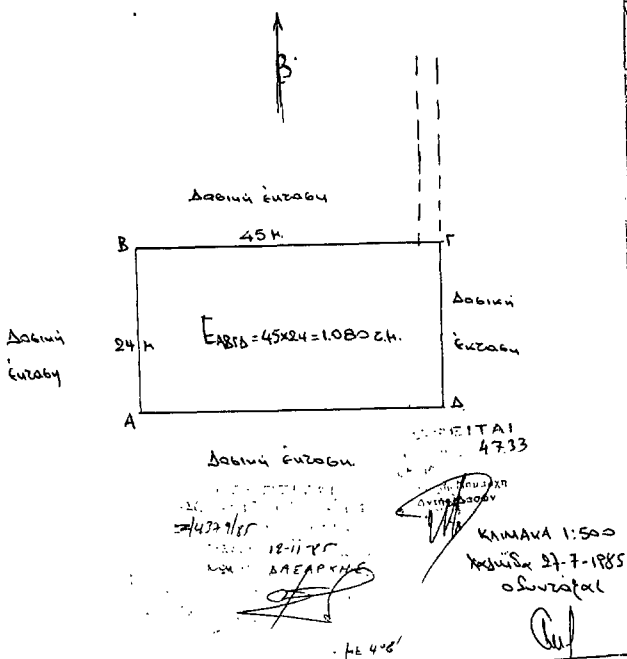 Β
Δασική έκταση
45 μ.
Β Γ
Δασική έκταση
24 μ
Ε ΑΒΓΔ = 45×24 = 1.080 τ.μ.
Δασική έκταση
Α Δ
Δασική έκταση
ΕΙΤΑΙ
4733
4379/85
18-11-85
ΔΑΣΑΡΧΗΣ
ΚΛΙΜΑΚΑ 1:500
Χαλκίδα 27-7-1985
ο Συντάξας